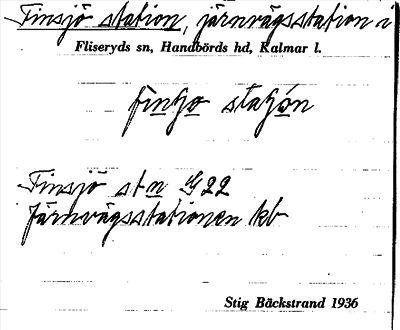 Finsjö station, järnvägsstation i
Fliseryds sn, Handbörds hd, Kalmar l.
Finsjö stn G22
Järnvägsstationen kb
Stig Bäckstrand 1936